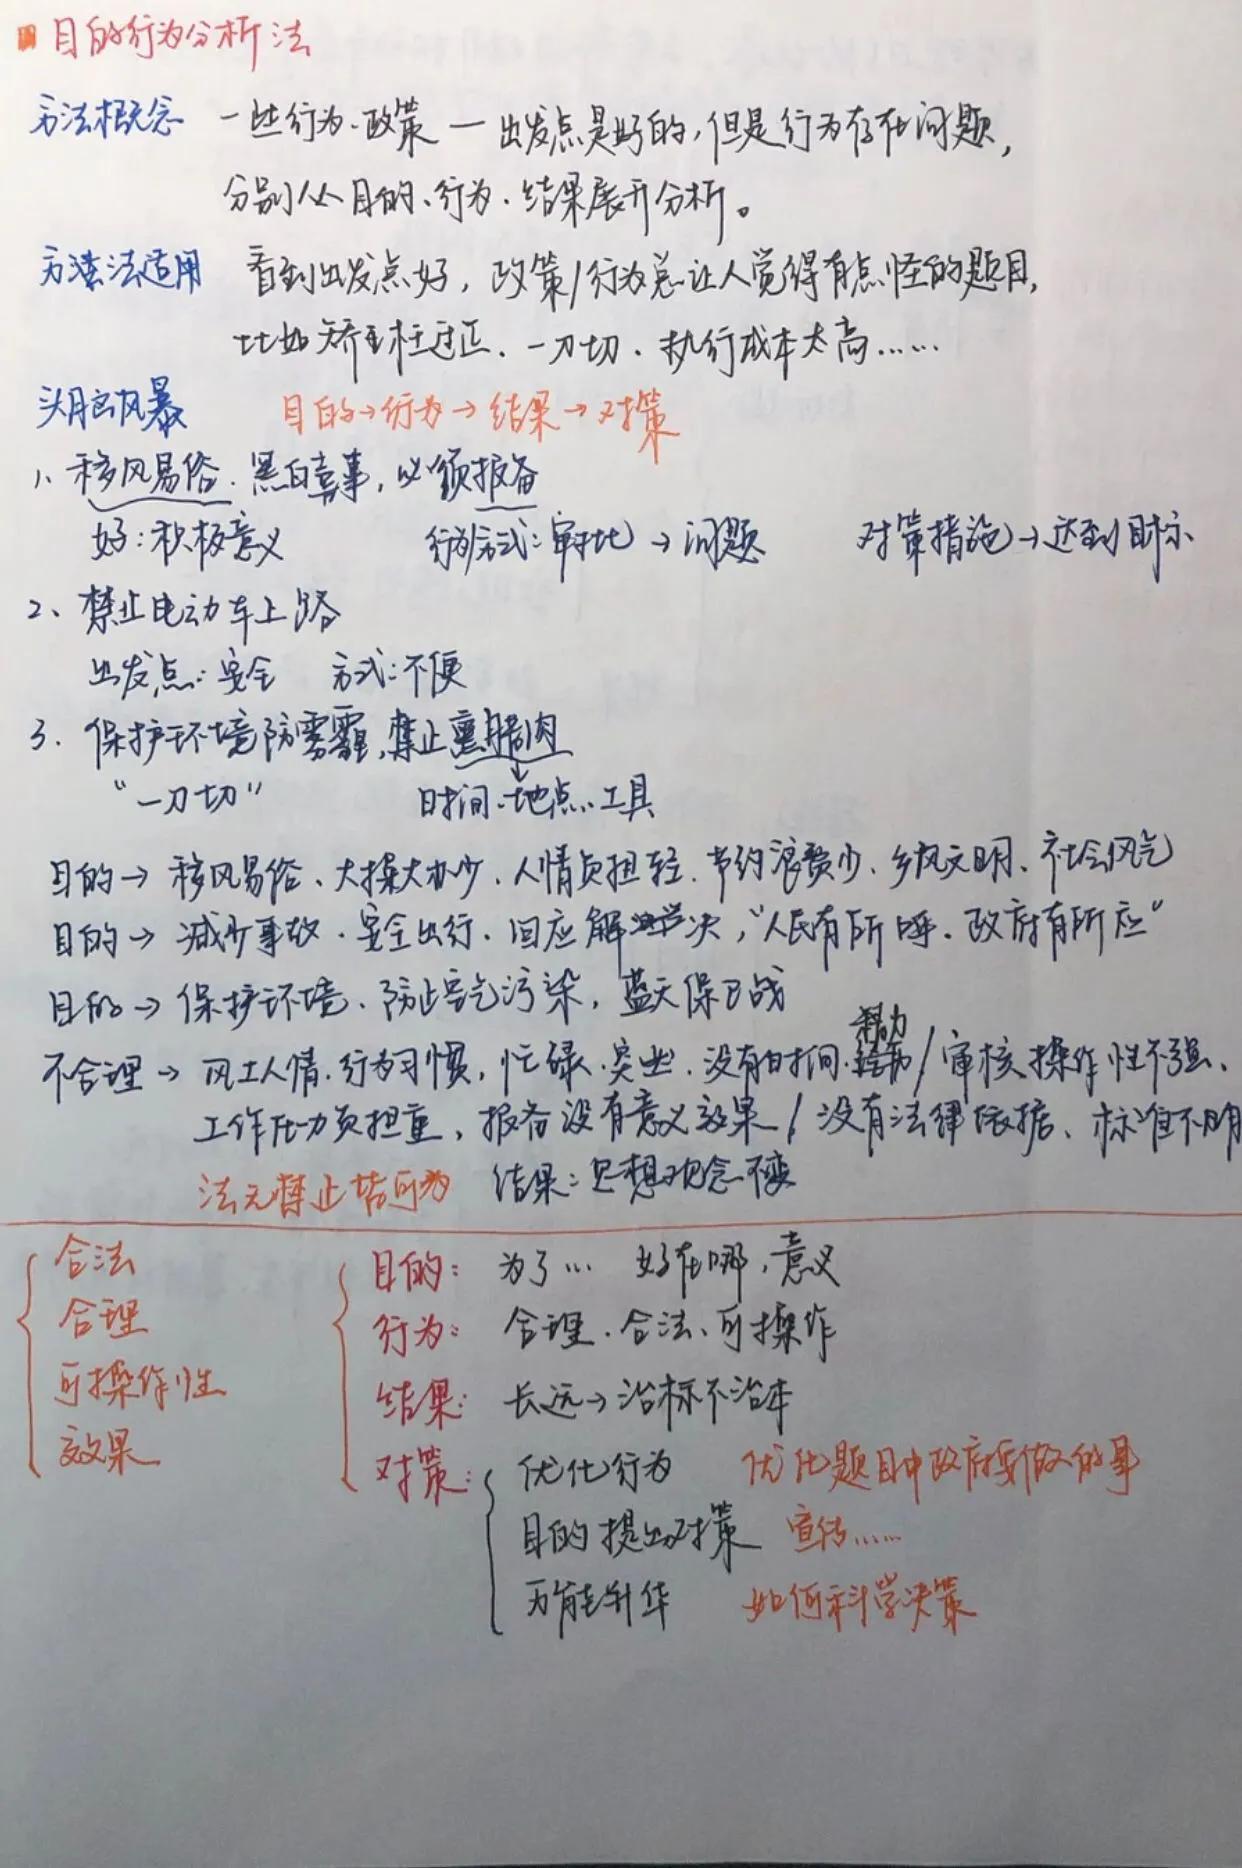 目的行为分析法
方法概念 一些行为、政策一出发点是好的,但是行为存在问题,
分别从目的、行为、结果展开分析。
方法适用 看到出发点好,政策/行为总让人觉得有点怪的题目,
比如矫枉过正、一刀切、执行成本太高……
头脑风暴 目的→行为→结果→对策
1、移风易俗、黑白喜事,必须报备
好:积极意义 行为方式:审批→问题 对策措施→达到目标
2、禁止电动车上路
出发点:安全 方式:不便
3.保护环境防雾霾,禁止熏腊肉
"一刀切" 时间、地点、工具
目的→移风易俗、大操大办少、人情负担轻、节约浪费少、乡风文明、社会风气
目的→减少事故、安全出行、回应解决,"人民有所呼、政府有所应"
目的→保护环境、防止空气污染,蓝天保卫战
不合理→风土人情、行为习惯,忙碌、突出、没有时间、精力/审核操作性不强、
工作压力负担重,报备没有意义效果/没有法律依据、标准不明
法无禁止皆可为 结果:思想观念不变
合法
合理
可操作性
效果
目的:为了… 好在哪,意义
行为:合理、合法、可操作
结果:长远→治标不治本
对策:优化行为 优化题目中政府要做的事
目的提出对策 宣传……
万能升华 如何科学决策